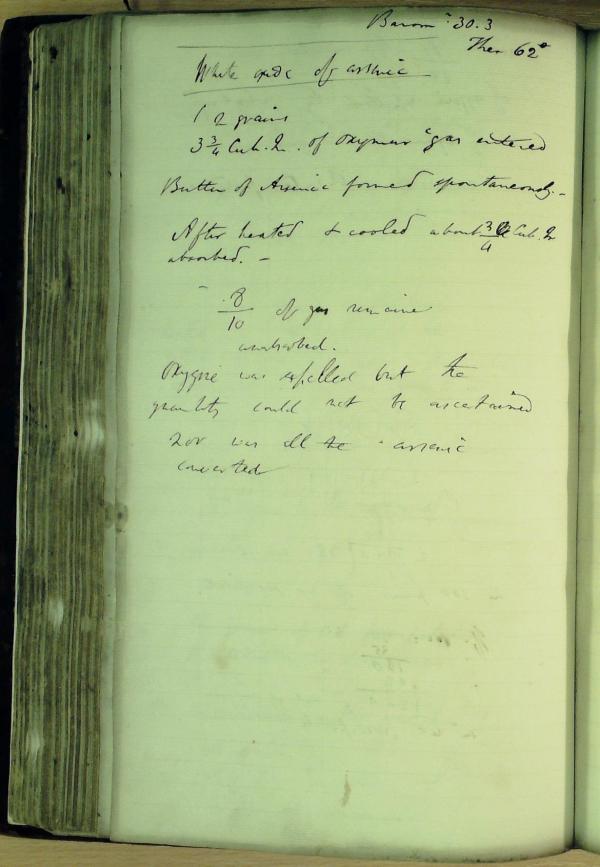 Barom.r 30.3
Ther 62°
White oxide of arsenic
2 grains
3 3/4 Cub. In. of oxymur c gas entered
Butter of Arsenic formed spontaneously. -
After heated & cooled about 3/4 Cub. In
absorbed. -
8/10 of gas remained
unabsorbed.
Oxygene was expelled but the
quantity could not be ascertained
nor was all the arsenic
converted